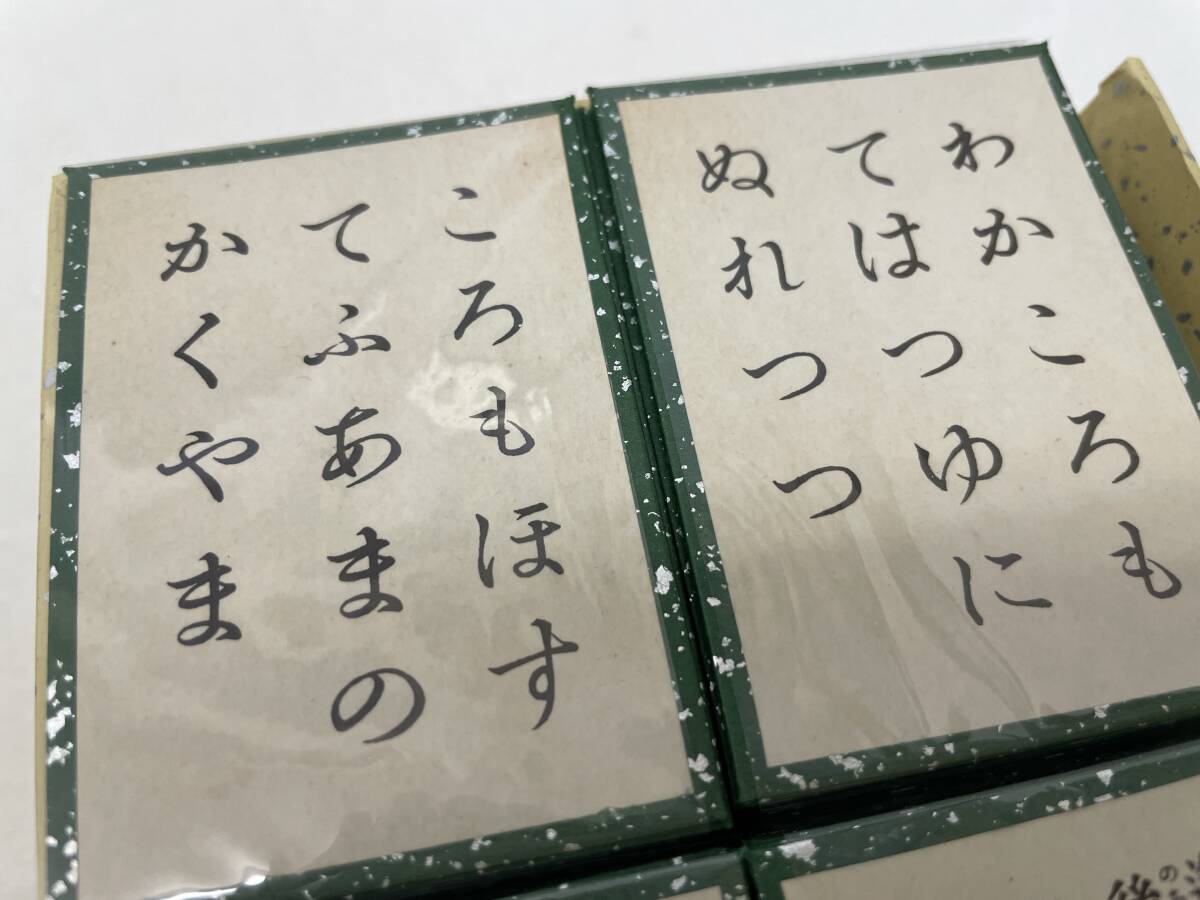 わかころも
てはつゆに
ぬれつつ
ころもほす
てふあまの
かくやま
の